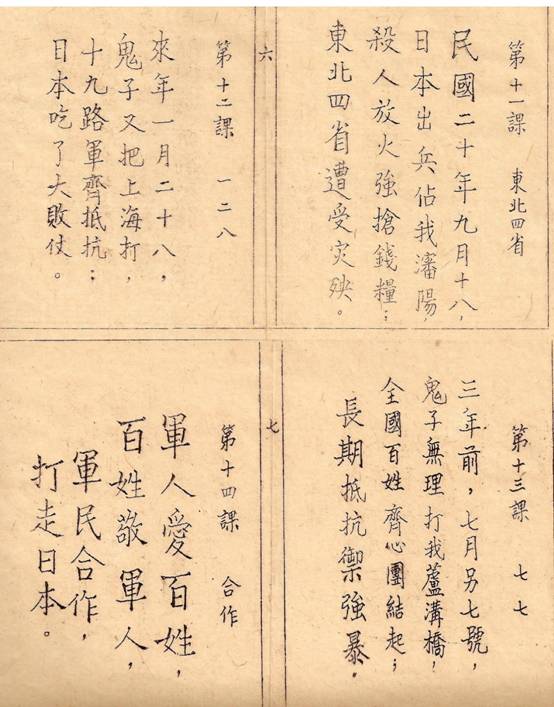 第十一課 東北四省
民國二十年九月十八，
日本出兵佔我瀋陽，
殺人放火強搶錢糧；
東北四省遭受災殃。
六
第十二課 一二八
來年一月二十八，
鬼子又把上海打，
十九路軍齊抵抗；
日本吃了大敗仗。
第十三課 七七
三年前，七月另七號，
鬼子無理打我蘆溝橋，
全國百姓齊心團結起；
長期抵抗禦強暴。
七
第十四課 合作
軍人愛百姓，
百姓敬軍人，
軍民合作，
打走日本。